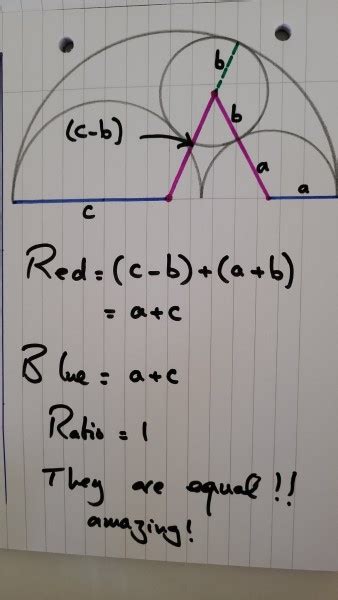 b
(c-b)
b
a
a
c
Red = (c-b)+(a+b)
= a+c
Blue = a+c
Ratio = 1
They are equal!!
amazing!